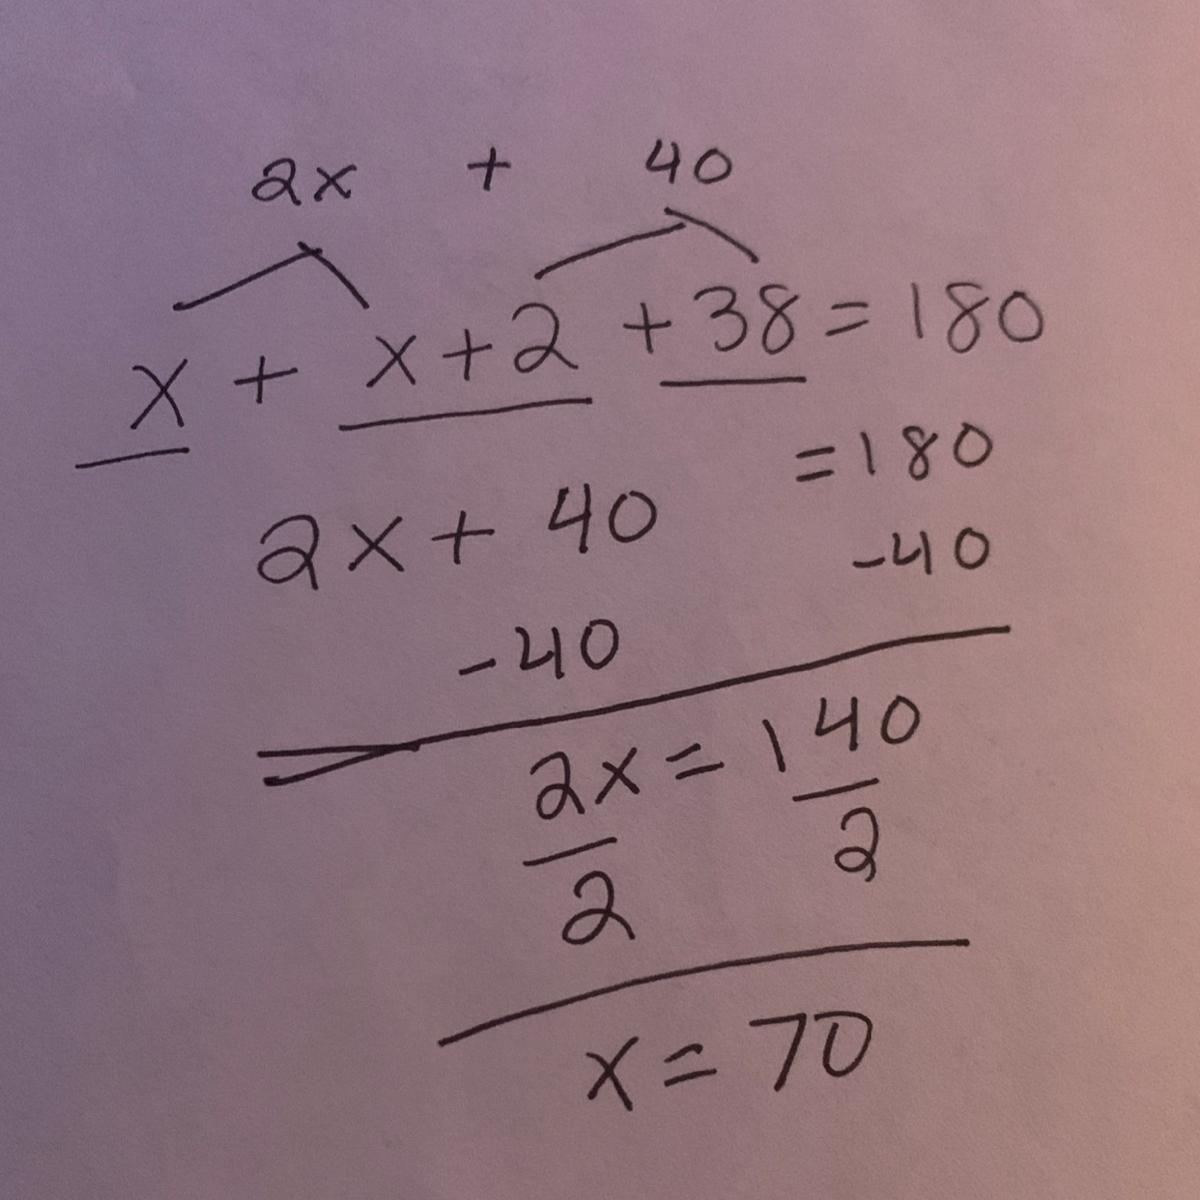 2x + 40
x + x + 2 + 38 = 180
2x + 40 = 180
-40 -40
2x = 140
2 2
x = 70